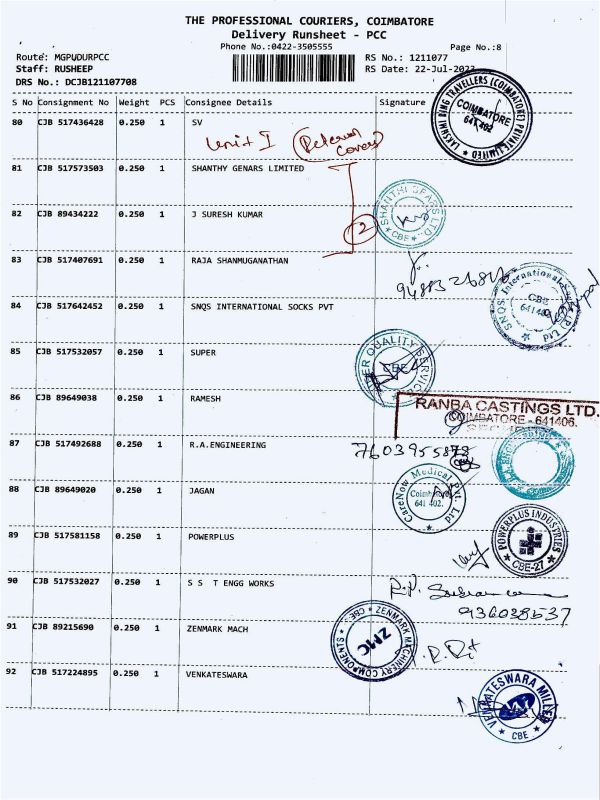 THE PROFESSIONAL COURIERS, COIMBATORE
Delivery Runsheet - PCC
Phone No.:0422-3505555 Page No.:8
Route: MGPUDURPCC RS No.: 1211077
Staff: RUSHEEP RS Date: 22-Jul-2023
DRS No.: DCJB121107708
S No Consignment No Weight PCS Consignee Details Signature
80 CJB 517436428 0.250 1 SV
LAKSHMI RING TRAVELLERS (COIMBATORE) PRIVATE LIMITED
COIMBATORE
641 402
Unit I
Covers
81 CJB 517573503 0.250 1 SHANTHY GENARS LIMITED
82 CJB 89434222 0.250 1 J SURESH KUMAR
2
SHANTHI GEARS LTD.
CBE
83 CJB 517407691 0.250 1 RAJA SHANMUGANATHAN
84 CJB 517642452 0.250 1 SNQS INTERNATIONAL SOCKS PVT
SNQS International (P) Ltd
CBE
85 CJB 517532057 0.250 1 SUPER
SUPER QUALITY SERVICES
CBE
86 CJB 89649038 0.250 1 RAMESH
RANBA CASTINGS LTD.
COIMBATORE - 641406.
87 CJB 517492688 0.250 1 R.A.ENGINEERING
88 CJB 89649020 0.250 1 JAGAN
CareNow Medical Pvt. Ltd
641 402.
89 CJB 517581158 0.250 1 POWERPLUS
POWERPLUS INDUSTRIES
CBE-27
90 CJB 517532027 0.250 1 S S T ENGG WORKS
91 CJB 89215690 0.250 1 ZENMARK MACH
ZENMARK MACHINERY COMPONENTS
CBE
ZMC
92 CJB 517224895 0.250 1 VENKATESWARA
VENKATESWARA MILLER
CBE